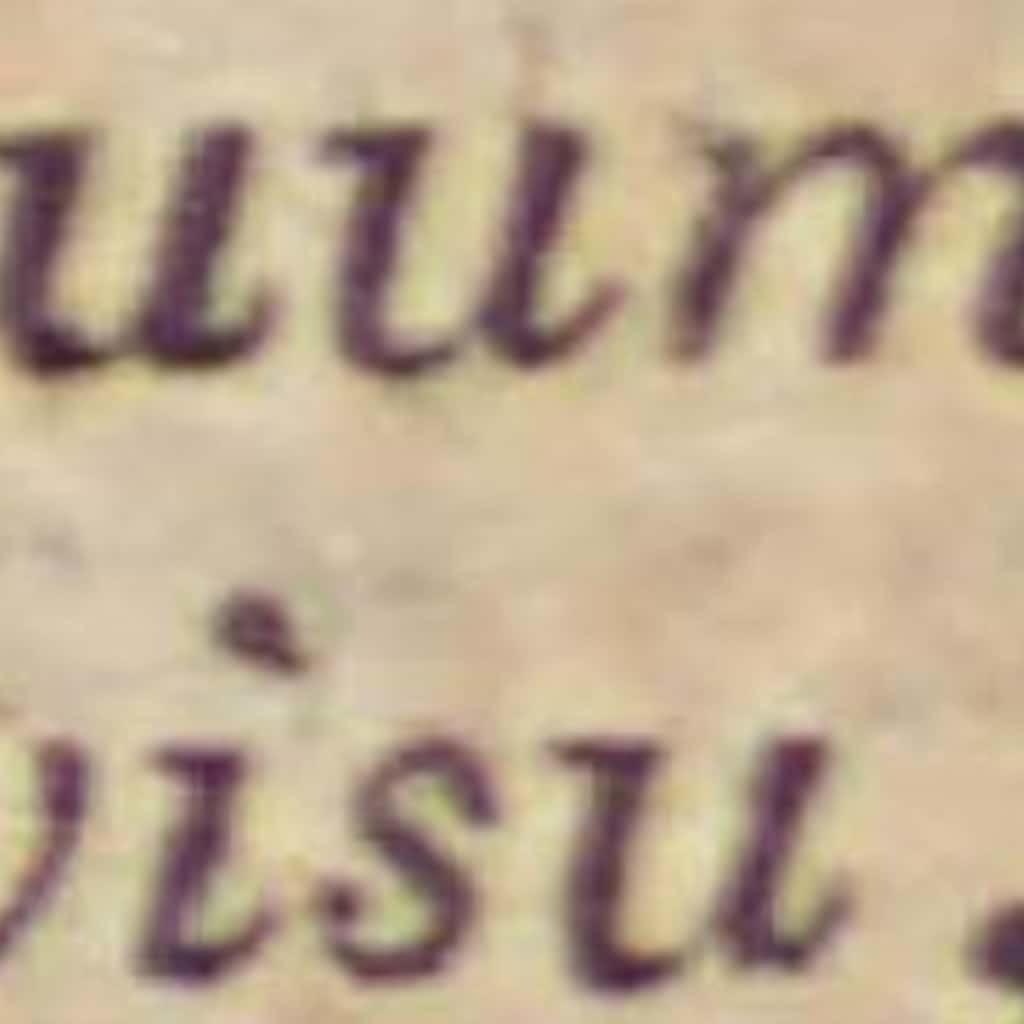 uum
visu.